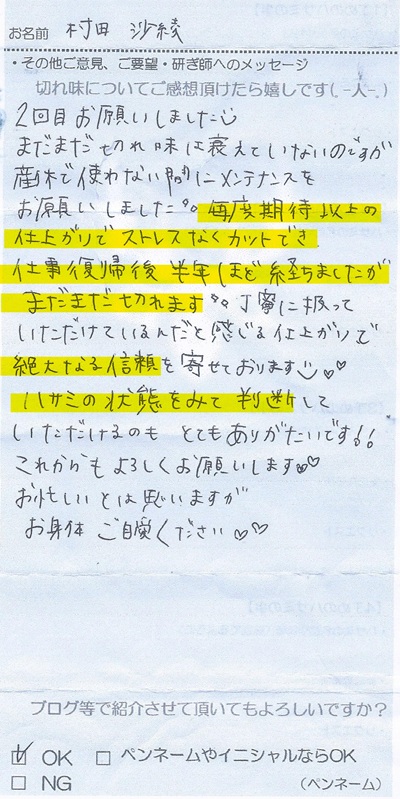 お名前 村田 沙綾
・その他ご意見、ご要望・研ぎ師へのメッセージ
切れ味についてご感想頂けたら嬉しです(_ -人-_)
2回目お願いしました
まだまだ切れ味は衰えていないのですが
産休で使わない間にメンテナンスを
お願いしました。毎度期待以上の
仕上がりでストレスなくカットでき
仕事復帰後 半年ほど経ちましたが
まだまだ切れます 丁寧に扱って
いただけているんだと感じる仕上がりで
絶大なる信頼を寄せております♡♡
ハサミの状態をみて判断して
いただけるのも とてもありがたいです!!
これからもよろしくお願いします♡♡
お忙しいとは思いますが
お身体 ご自愛ください♡♡
ブログ等で紹介させて頂いてもよろしいですか?
☑ OK □ ペンネームやイニシャルならOK
□ NG (ペンネーム)